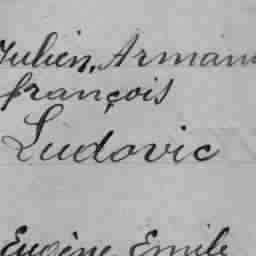 Julien, Armand
françois
Ludovic
Eugène Emile